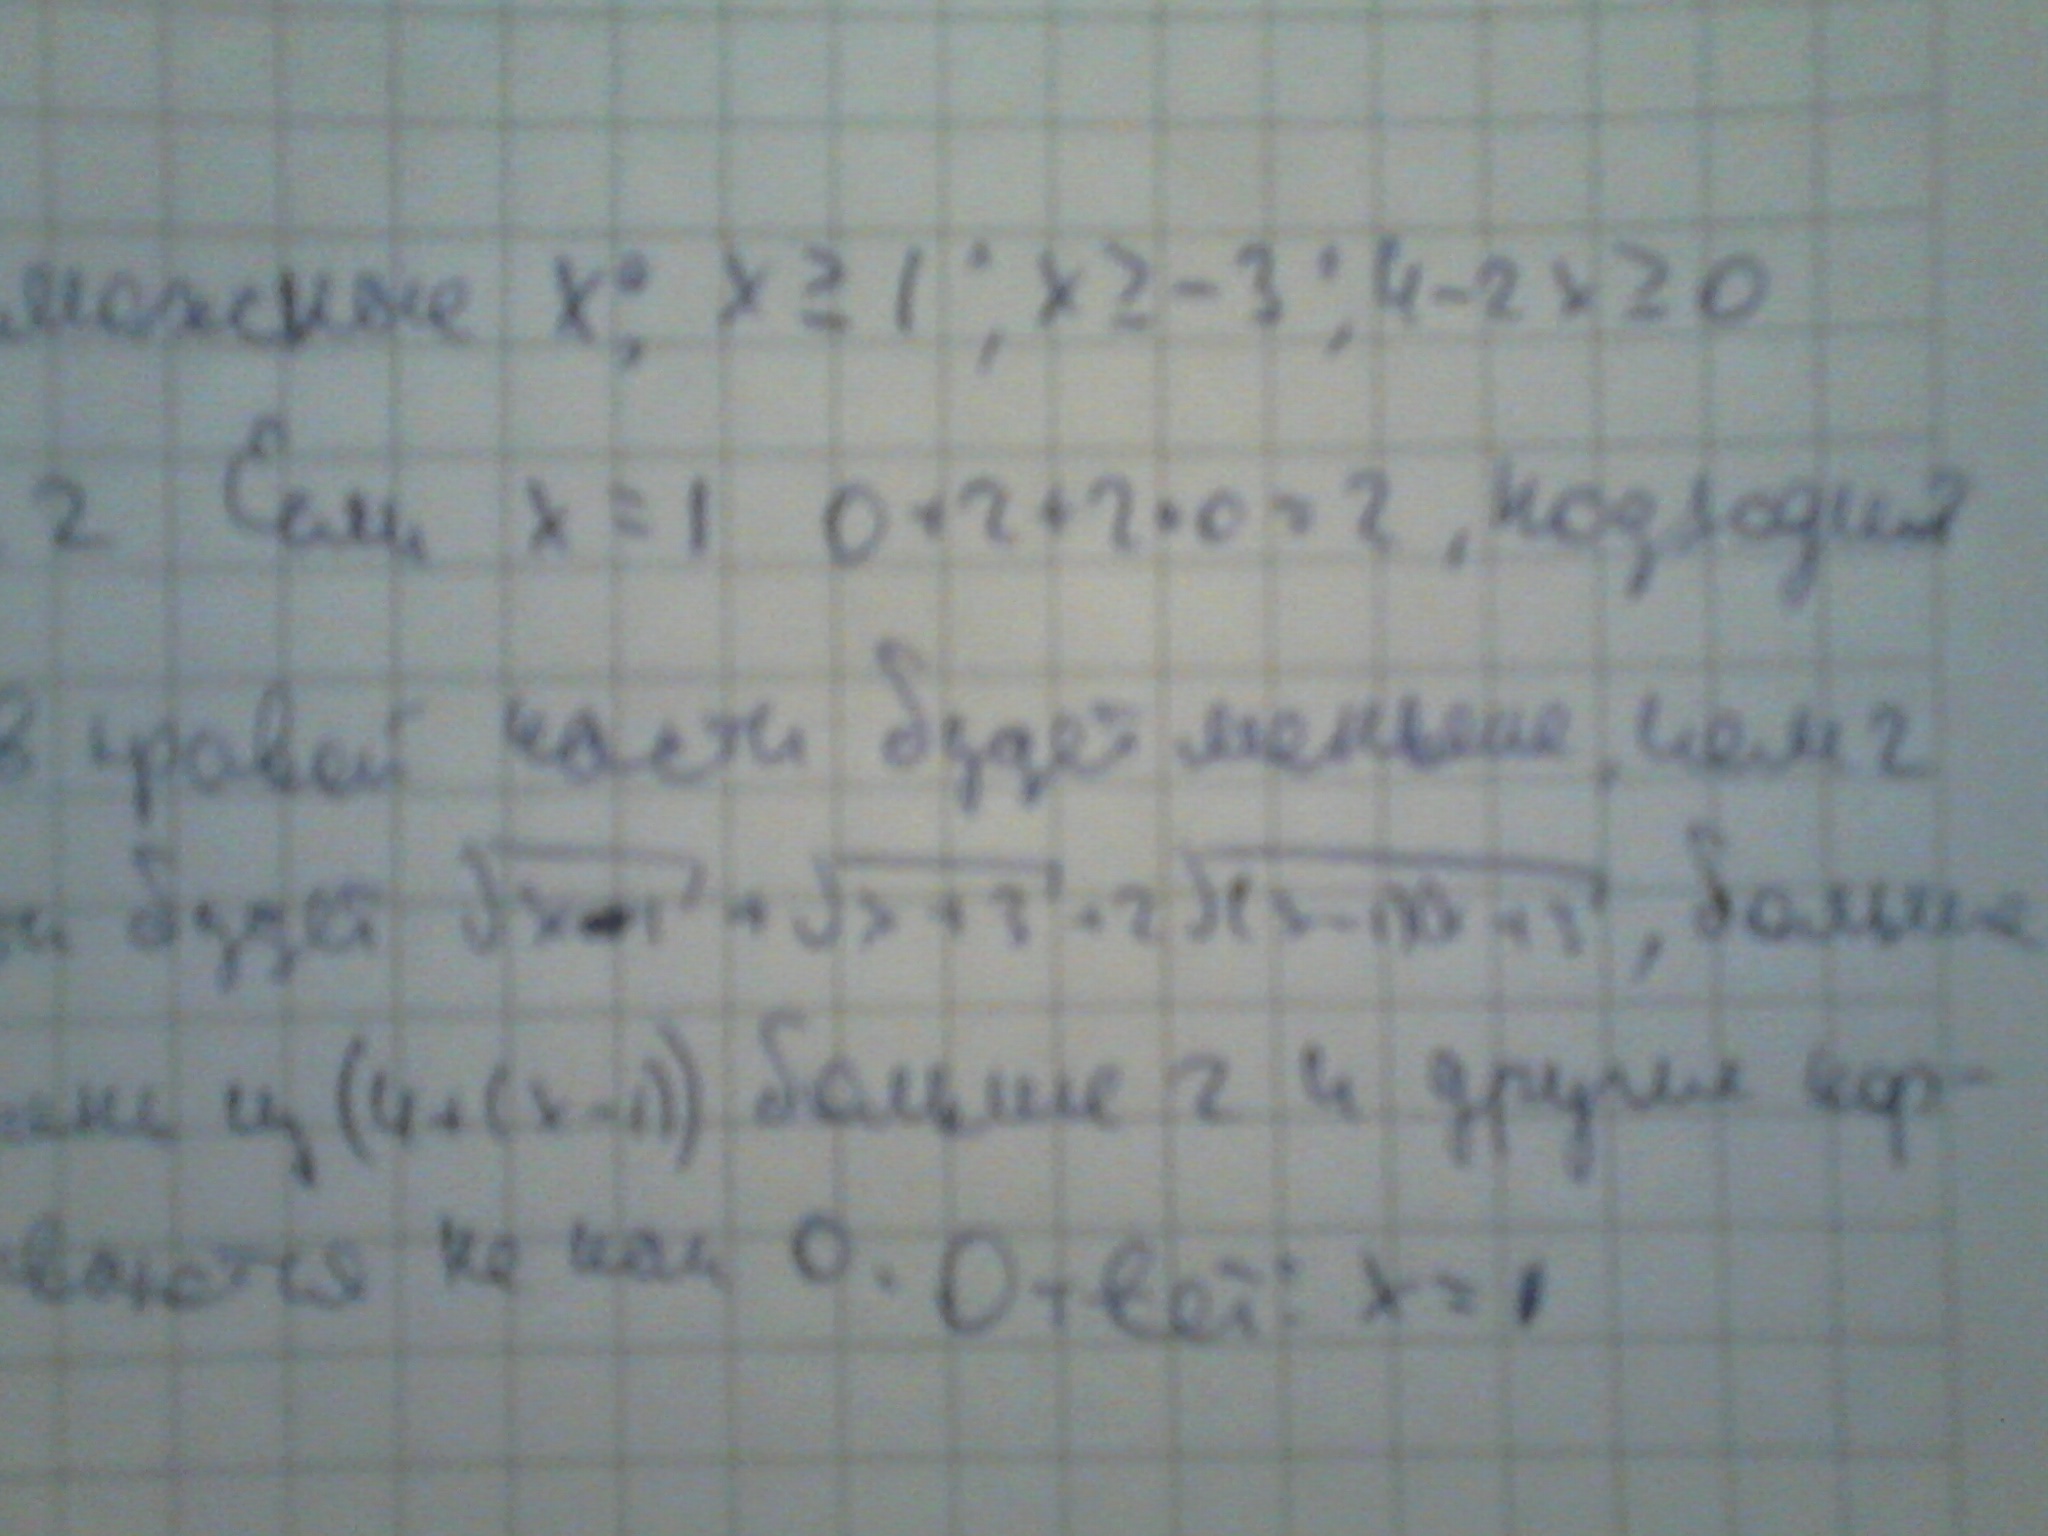 можные x: x ≥ 1; x ≥ -3; 4-2x ≥ 0
2 Если x = 1 0+2+2·0=2, подходит
в правой части будет меньше, чем 2
будет √x-1 + √x+3 + 2√(x-1)(x+3), больше
из (4+(x-1)) больше 2 и другие кор-
ваются не как 0. Ответ: x = 1